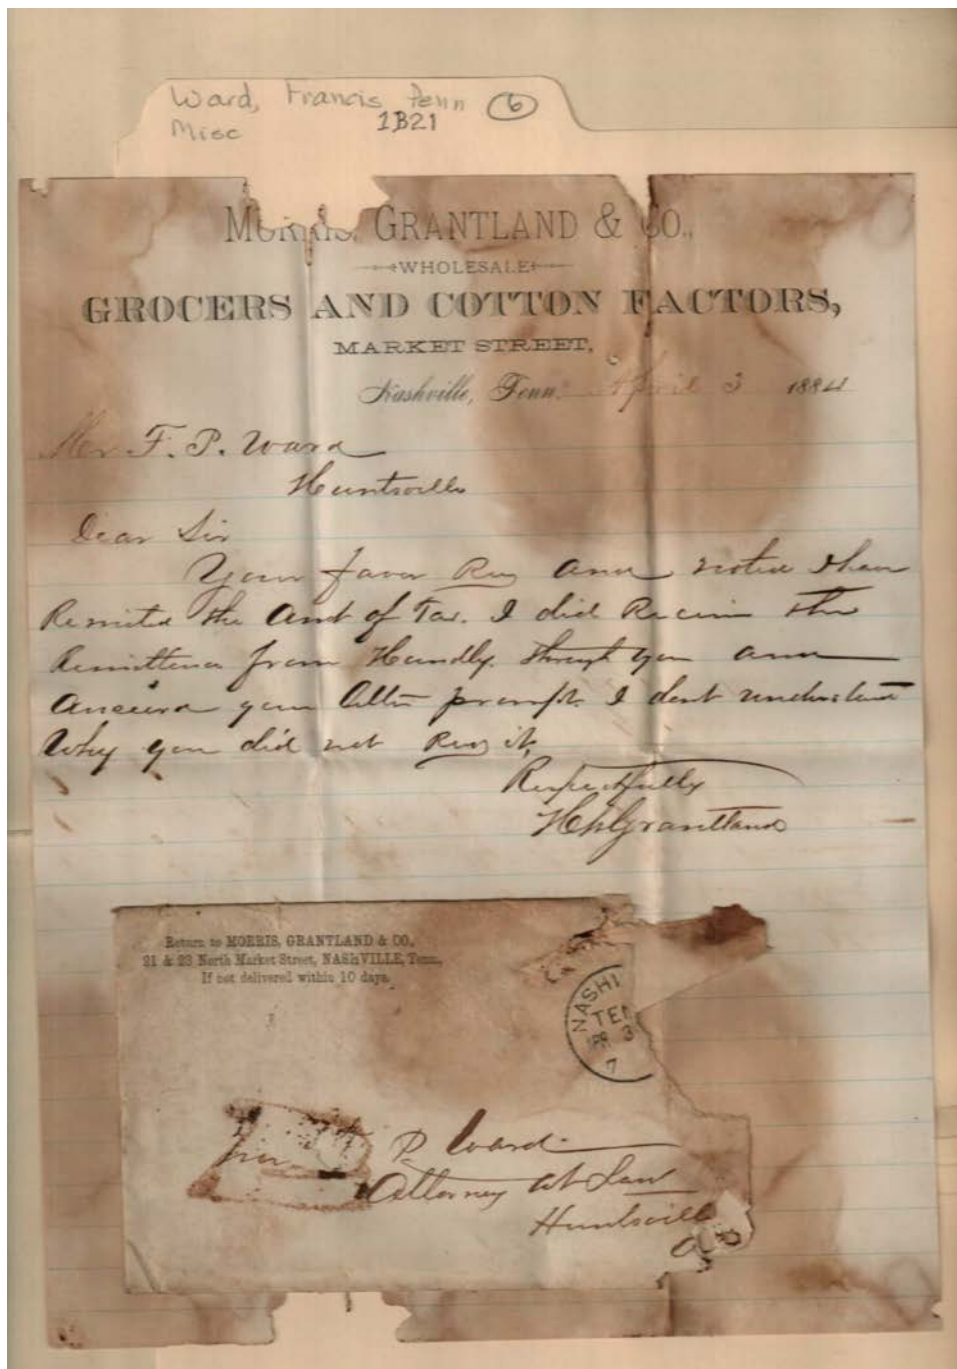 Ward, Francis Penn 6
Misc 1B21
Morris, GRANTLAND & CO.,
WHOLESALE
GROCERS AND COTTON FACTORS,
MARKET STREET,
Nashville, Tenn. April 3 1884
Mr F. P. Ward
Huntsville
Dear Sir
Your favor Rec and noted I have
Remitted the Amt of Tax. I did Receive the
Remittance from Handly. through you and
Answerd your letter prompt. I dont understand
Why you did not Rec it,
Respectfully
Grantland
Return to MORRIS, GRANTLAND & CO.,
21 & 23 North Market Street, NASHVILLE, Tenn.,
If not delivered within 10 days.
NASH
TEN
APR 3
7
P. Ward
Attorney at Law
Huntsville
Ala